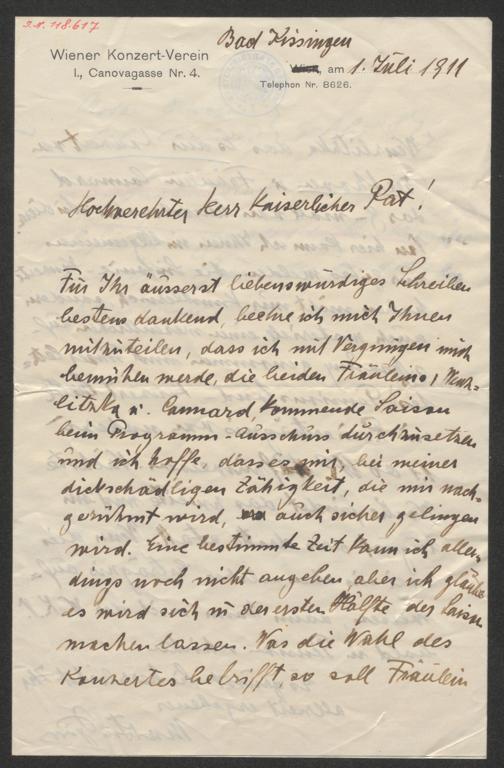 J.N. 118.617
Bad Kissingen
Wiener Konzert-Verein
I., Canovagasse Nr. 4.
Wien, am 1. Juli 1911
Telephon Nr. 8626.
Hochverehrter Herr Kaiserlicher Rat!
Für Ihr äusserst liebenswürdiges Schreiben
bestens dankend, beehre ich mich Ihnen
mitzuteilen, dass ich mit Vergnügen mich
bemühen werde, die beiden Fräuleins,
litzka u. kommende Saison
beim Programm-Ausschuss durchzusetzen
und ich hoffe, dass es mir, bei meiner
dickschädligen Zähigkeit, die mir nach-
gerühmt wird, auch sicher gelingen
wird. Eine bestimmte Zeit kann ich aller-
dings noch nicht angeben aber ich glaube
es wird sich in der ersten Hälfte der Saison
machen lassen. Was die Wahl des
Konzertes betrifft, so soll Fräulein